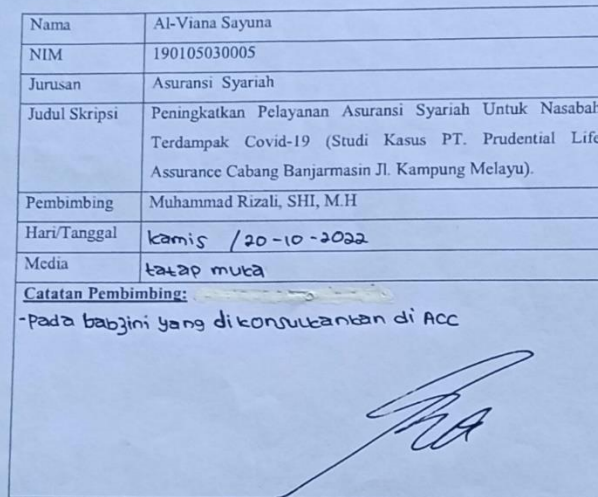 Nama Al-Viana Sayuna
NIM 190105030005
Jurusan Asuransi Syariah
Judul Skripsi Peningkatkan Pelayanan Asuransi Syariah Untuk Nasabah
Terdampak Covid-19 (Studi Kasus PT. Prudential Life
Assurance Cabang Banjarmasin Jl. Kampung Melayu).
Pembimbing Muhammad Rizali, SHI, M.H
Hari/Tanggal kamis /20-10-2022
Media tatap muka
Catatan Pembimbing:
-Pada bab3ini yang dikonsultankan di ACC